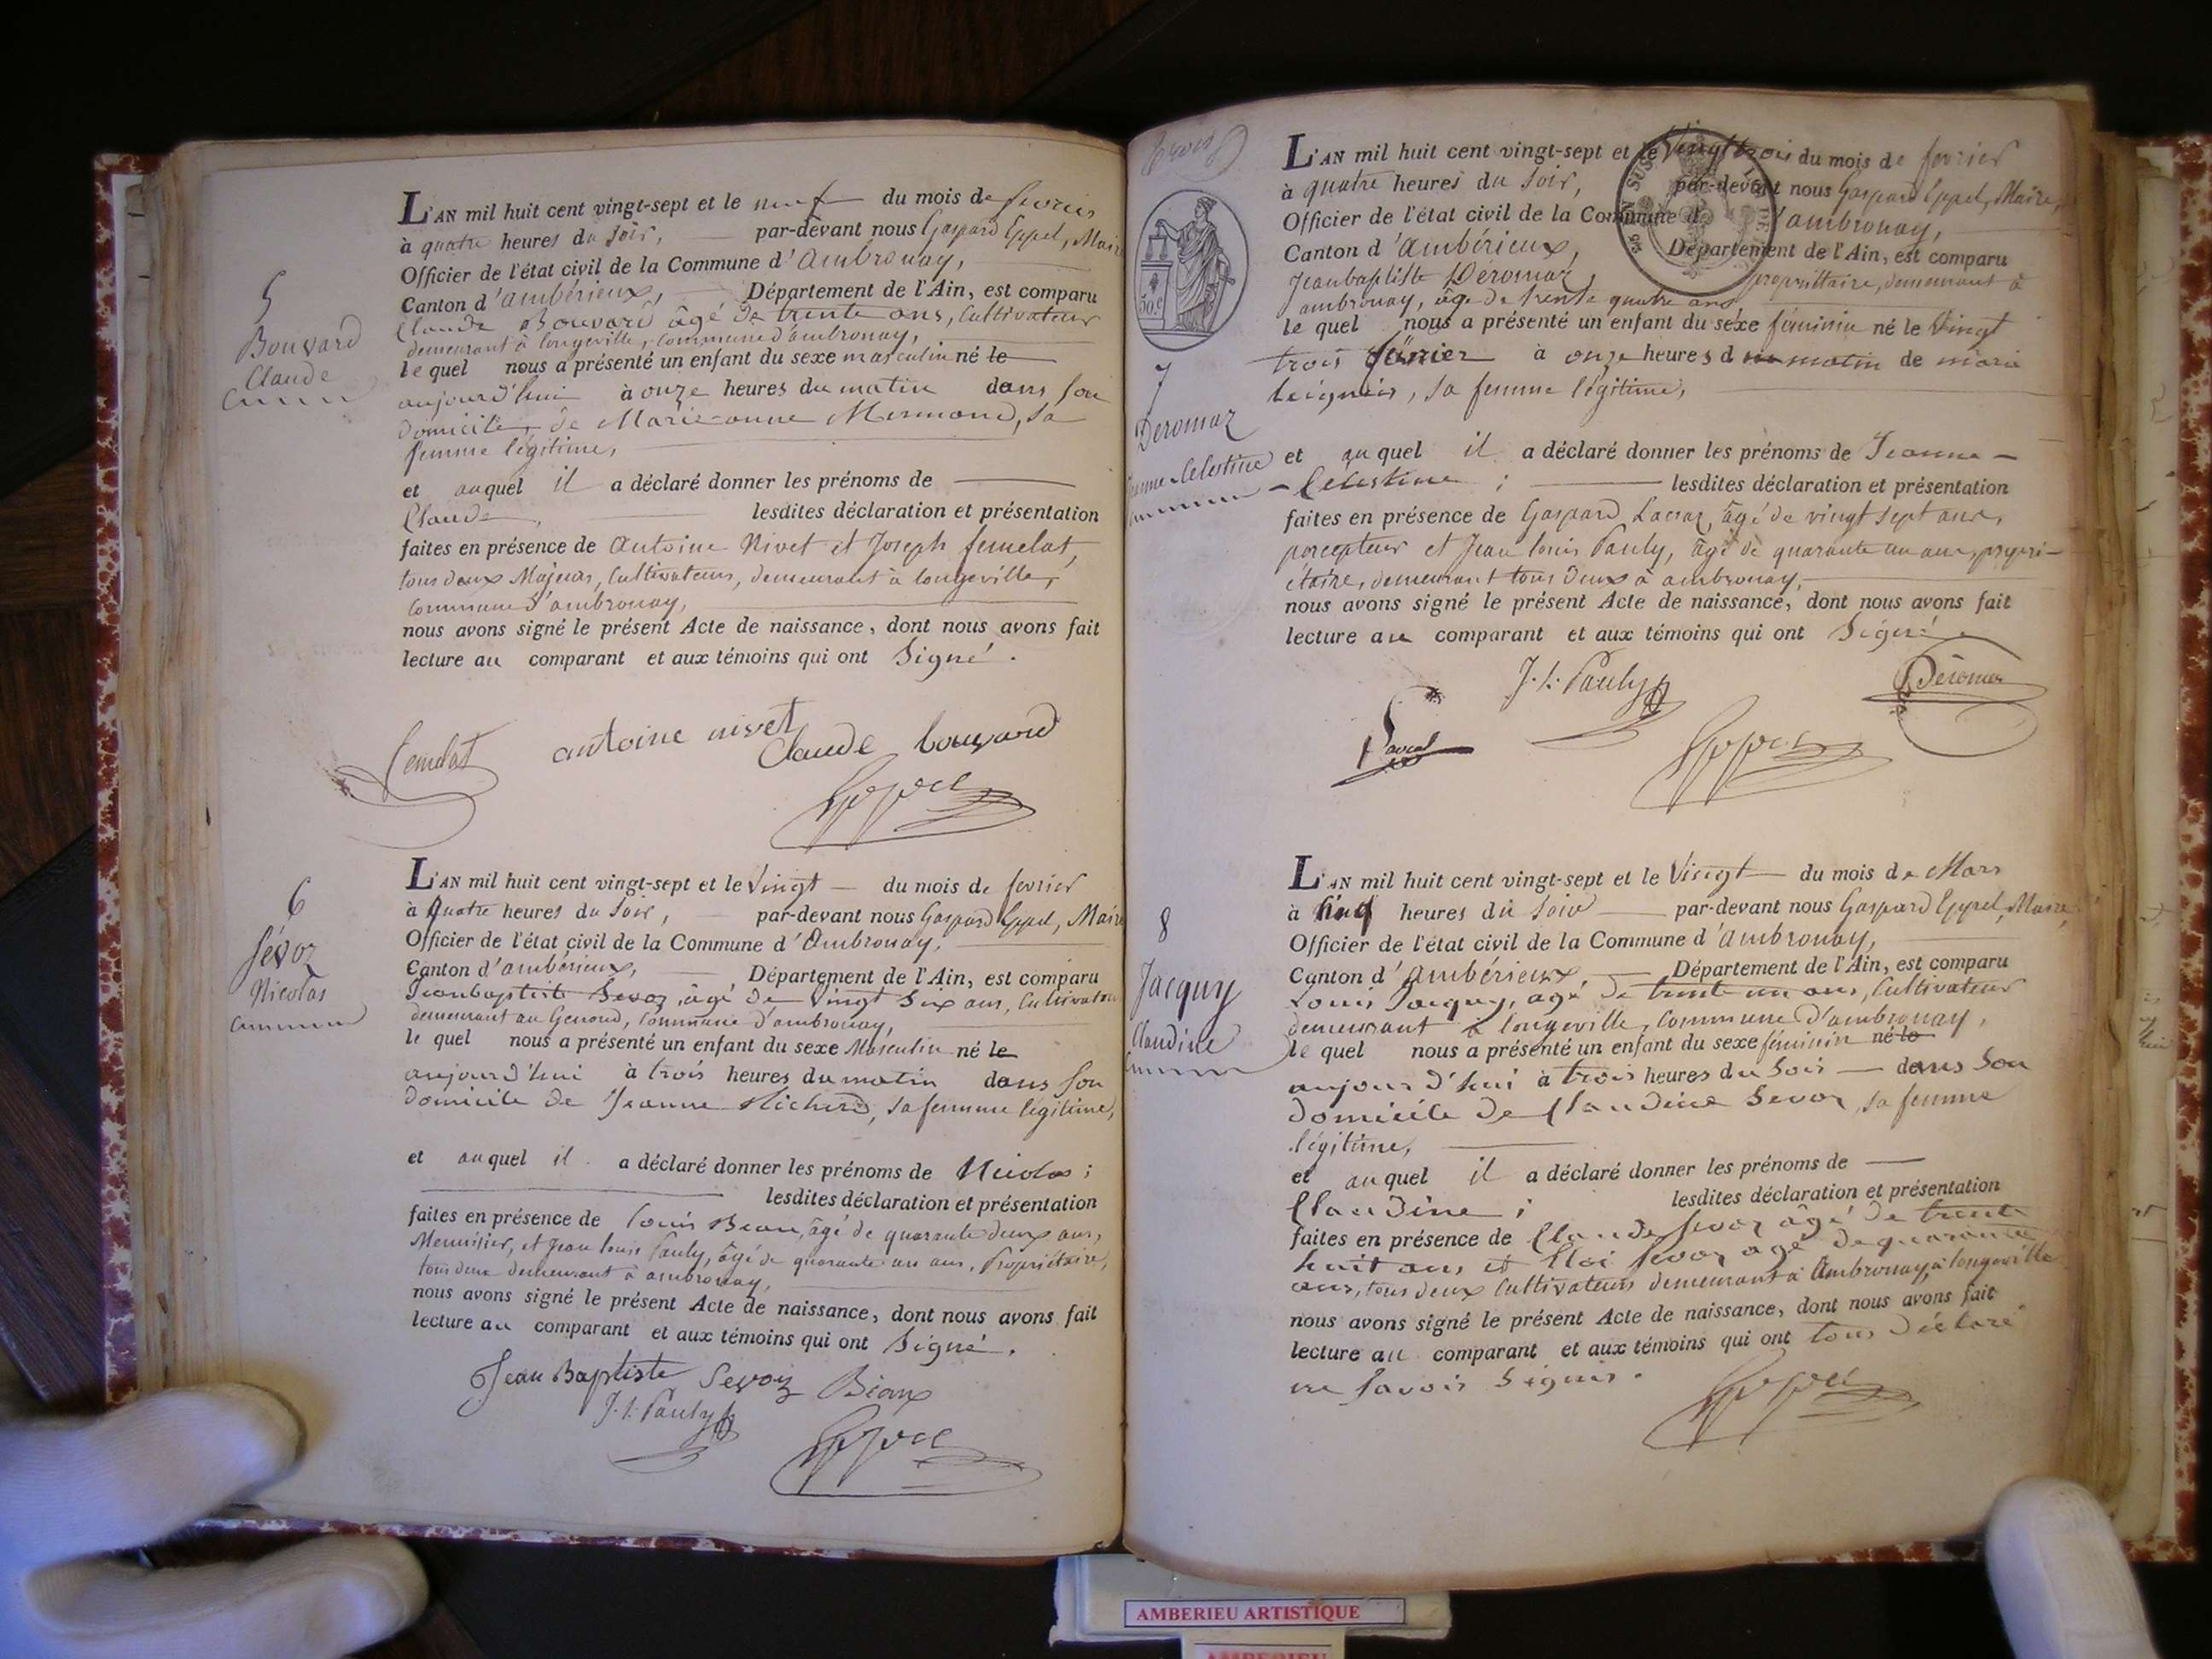 5
Bouvard
Claude
L'AN mil huit cent vingt-sept et le neuf du mois de fevrier
à quatre heures du soir, par-devant nous Gaspard Eppel, Maire
Officier de l'état civil de la Commune d'Ambronay,
Canton d'ambérieux, Département de l'Ain, est comparu
Claude Bouvard âgé de trente ans, Cultivateur
demeurant à longeville, commune d'ambronay,
le quel nous a présenté un enfant du sexe masculin né le
aujourd'hui à onze heures du matin dans son
domicile, de Marie-anne Mermand, sa
femme légitime,
et auquel il a déclaré donner les prénoms de
Claude, lesdites déclaration et présentation
faites en présence de Antoine Nivet et Joseph femelat,
tous deux Majeurs, Cultivateurs, demeurant à longeville,
commune d'ambronay,
nous avons signé le présent Acte de naissance, dont nous avons fait
lecture au comparant et aux témoins qui ont Signé.
femelat antoine nivet Claude bouvard
Eppel
6
Sévoz
Nicolas
L'AN mil huit cent vingt-sept et le Vingt du mois de fevrier
à Quatre heures du Soir, par-devant nous Gaspard Eppel, Maire
Officier de l'état civil de la Commune d'Ambronay,
Canton d'ambérieux, Département de l'Ain, est comparu
Jeanbaptiste Sevoz, âgé de Vingt Six ans, Cultivateur
demeurant au Genoud, Commune d'ambronay,
le quel nous a présenté un enfant du sexe Masculin né le
aujourd'hui à trois heures du matin dans son
domicile de Jeanne Richerd, sa femme légitime,
et auquel il a déclaré donner les prénoms de Nicolas;
lesdites déclaration et présentation
faites en présence de Louis Beau, âgé de quarante deux ans,
Menuisier, et Jean louis Pauly, âgé de quarante un ans, Propriétaire,
tous deux demeurant à ambronay,
nous avons signé le présent Acte de naissance, dont nous avons fait
lecture au comparant et aux témoins qui ont Signé.
Jean Baptiste Sevoz
J. L. Pauly
Eppel
trois
30 c
7
Deromaz
Jeanne Celestine
L'AN mil huit cent vingt-sept et le Vingt trois du mois de fevrier
à quatre heures du Soir, par-devant nous Gaspard Eppel, Maire,
Officier de l'état civil de la Commune d'ambronay,
Canton d'Ambérieux, Département de l'Ain, est comparu
Jeanbaptiste Deromaz, propriétaire, demeurant à
ambronay, âgé de trente quatre ans
le quel nous a présenté un enfant du sexe féminin né le Vingt
trois février à onze heures du matin de marie
, sa femme légitime,
et au quel il a déclaré donner les prénoms de Jeanne-
-Celestine; lesdites déclaration et présentation
faites en présence de Gaspard Lacraz, âgé de vingt sept ans,
percepteur et Jean louis Pauly, âgé de quarante un ans, propri-
étaire, demeurant tous deux à ambronay,
nous avons signé le présent Acte de naissance, dont nous avons fait
lecture au comparant et aux témoins qui ont Signé.
J. L. Pauly Deromaz
Eppel
8
Jacquy
Claudine
L'AN mil huit cent vingt-sept et le Vingt du mois de Mars
à Cinq heures du soir par-devant nous Gaspard Eppel, Maire,
Officier de l'état civil de la Commune d'ambronay,
Canton d'Ambérieux, Département de l'Ain, est comparu
Louis Jacquy, âgé de trente un ans, Cultivateur
demeurant à longeville, Commune d'ambronay,
le quel nous a présenté un enfant du sexe féminin né le
aujour d'hui à trois heures du Soir dans Son
domicile de Claudine Sevoz, sa femme
légitime,
et auquel il a déclaré donner les prénoms de
Claudine; lesdites déclaration et présentation
faites en présence de Claude Sevoz âgé de trente
huit ans, et Eloi Sevoz âgé de quarante
ans, tous deux Cultivateurs demeurant à Ambronay, à longeville
nous avons signé le présent Acte de naissance, dont nous avons fait
lecture au comparant et aux témoins qui ont tous déclaré
ne Savoir Signer.
Eppel
AMBERIEU ARTISTIQUE
AMBERIEU